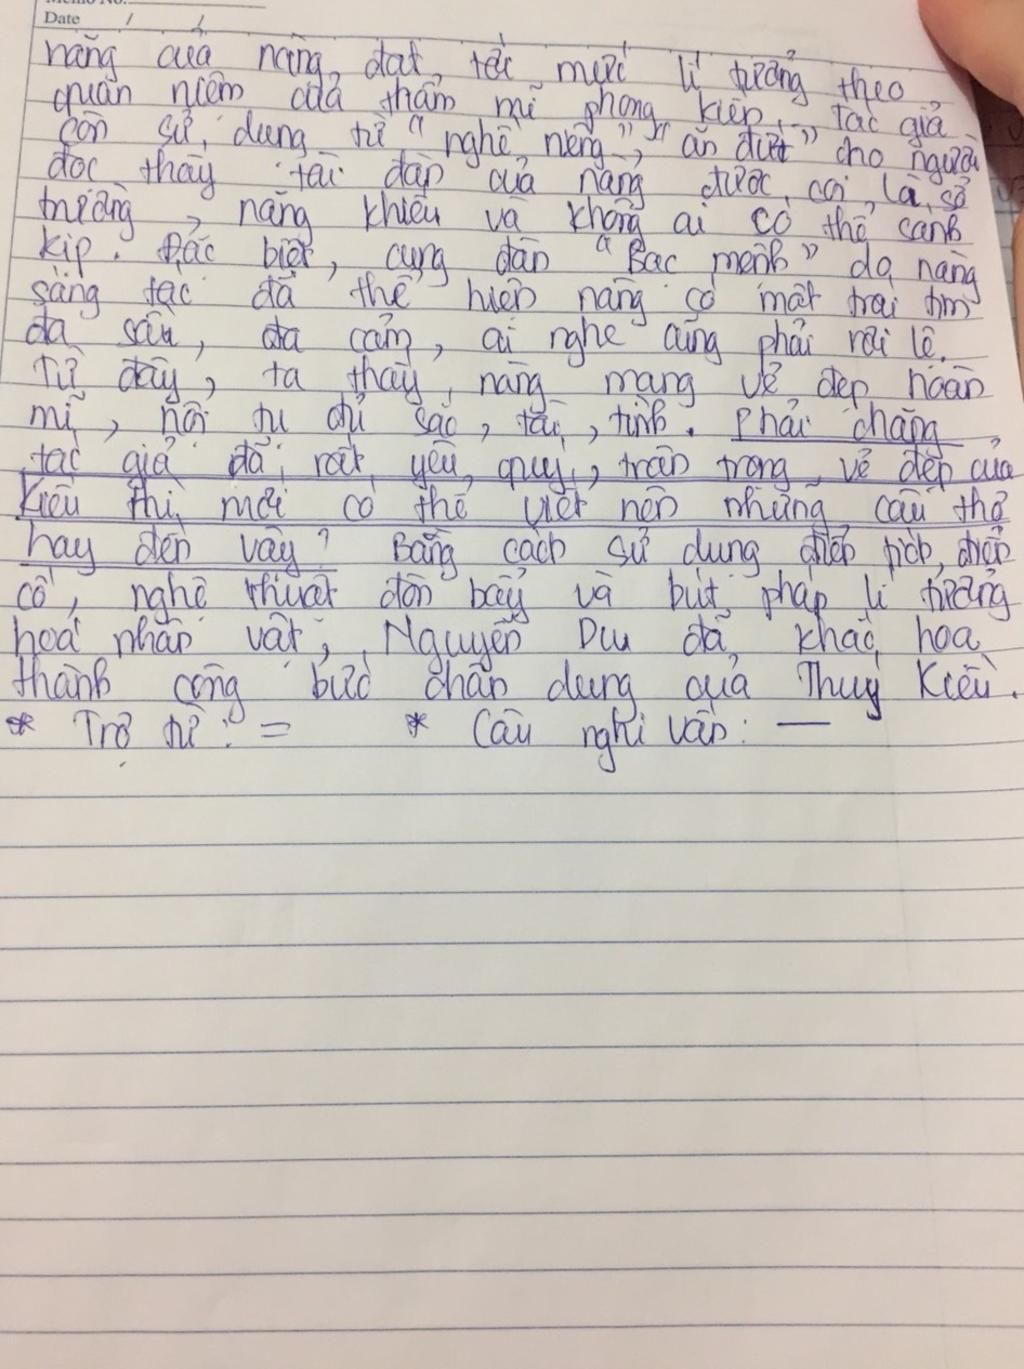 Date / /
năng của nàng đạt tới mức lí tưởng theo
quan niệm của thẩm mĩ phong kiến. Tác giả
còn sử dụng từ "nghề riêng", "ăn đứt" cho người
đọc thấy tài đàn của nàng được coi là sở
trường, năng khiếu và không ai có thể sánh
kịp. Đặc biệt, cung đàn "Bạc mệnh" do nàng
sáng tác đã thể hiện nàng có một trái tim
đa sầu, đa cảm, ai nghe cũng phải rơi lệ.
Từ đây, ta thấy nàng mang vẻ đẹp hoàn
mĩ, hội tụ đủ sắc, tài, tình. Phải chăng
tác giả đã rất yêu quý, trân trọng vẻ đẹp của
Kiều thì mới có thể viết nên những câu thơ
hay đến vậy? Bằng cách sử dụng điển tích, điển
cố, nghệ thuật đòn bẩy và bút pháp lí tưởng
hoá nhân vật, Nguyễn Du đã khắc hoạ
thành công bức chân dung của Thuý Kiều.
* Trợ từ: = * Câu nghi vấn: —